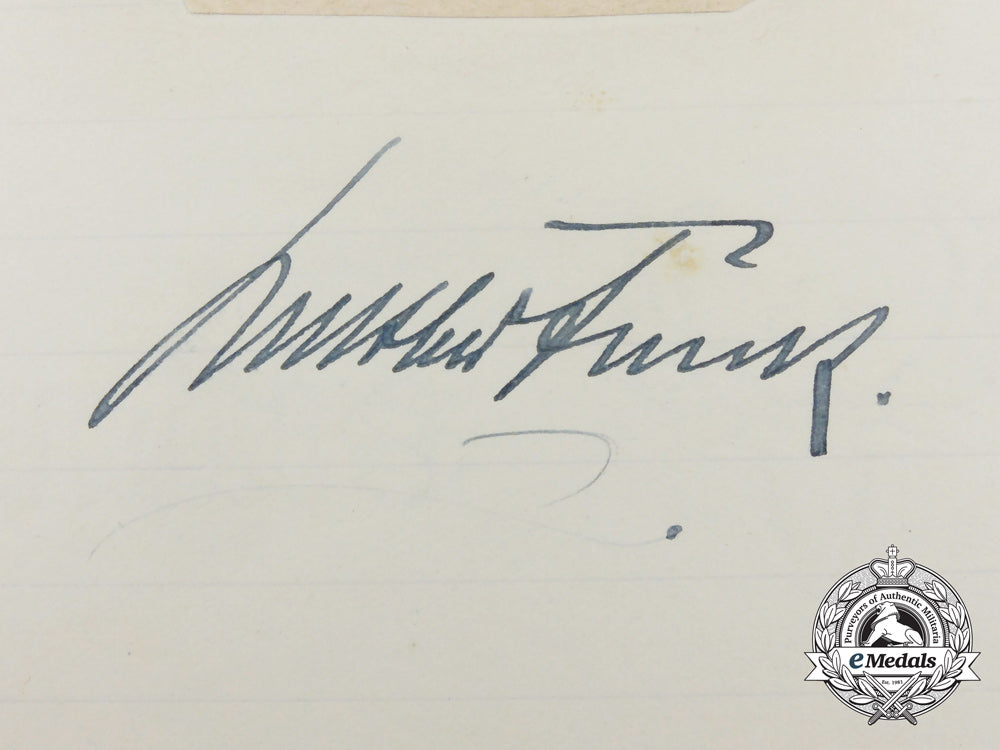 Funk.
Purveyors of Authentic Militaria
eMedals
Est. 1981